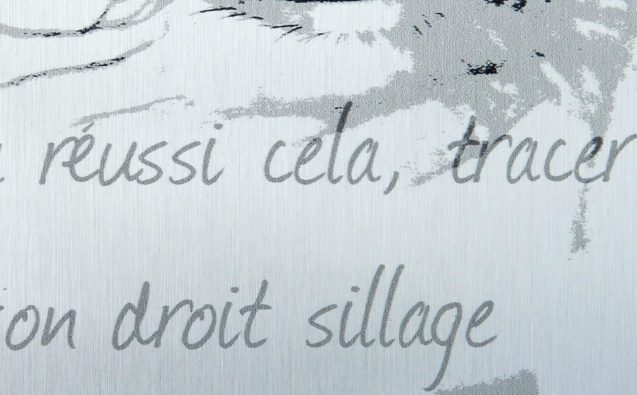 réussi cela, tracer
droit sillage